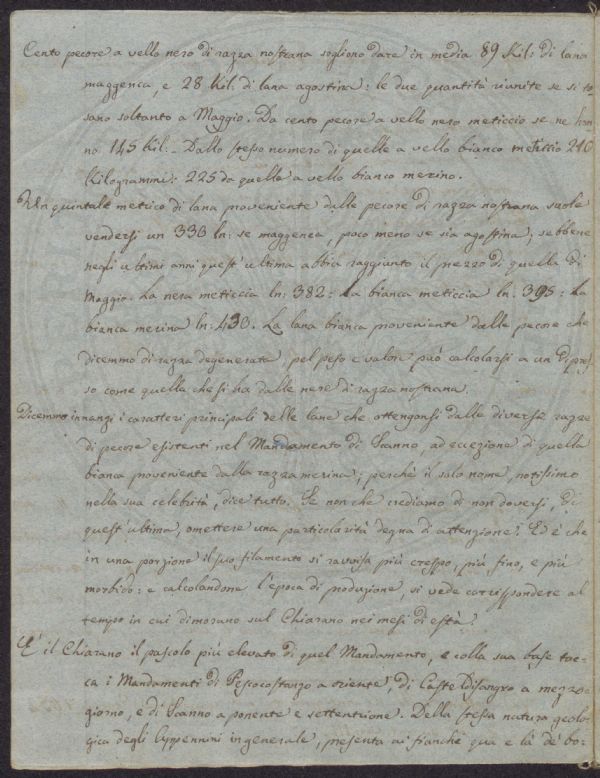 Cento pecore a vello nero di razza nostrana sogliono dare in media 89 Kil: di lana
maggenca, e 28 Kil. di lana agostina: le due quantità riunite se si to-
sano soltanto a Maggio. Da cento pecore a vello nero meticcio se ne han-
no 145 Kil. - Dallo stesso numero di quelle a vello bianco meticcio 210
Kilogrammi: 225 da quelle a vello bianco merino.
Un quintale metrico di lana proveniente dalle pecore di razza nostrana suole
vendersi un 330 ln: se maggenca, poco meno se sia agostina; sebbene
negli ultimi anni quest'ultima abbia raggiunto il prezzo di quella di
Maggio. La nera meticcia ln: 382: la bianca meticcia ln: 395: la
bianca merina ln: 430. La lana bianca proveniente dalle pecore che
dicemmo di razza degenerata, pel peso e valore può calcolarsi a un dipres-
so come quella che si ha dalle nere di razza nostrana.
Dicemmo innanzi i caratteri principali delle lane che ottengonsi dalle diverse razze
di pecore esistenti nel Mandamento di Scanno, ad eccezione di quella
bianca proveniente dalla razza merina; perchè il solo nome, notissimo
nella sua celebrità, dice tutto. Se non che crediamo di non doversi, di
quest'ultima, omettere una particolarità degna di attenzione? Ed è che
in una porzione il suo filamento si ravvisa più crespo, più fino, e più
morbido: e calcolandone l'epoca di produzione, si vede corrispondere al
tempo in cui dimorano sul Chiarano nei mesi di està?
È il Chiarano il pascolo più elevato di quel Mandamento, e colla sua base toc-
ca i Mandamenti di Pescocostanzo a oriente, di Casteldisangro a mezzo-
giorno, e di Scanno a ponente e settentrione. Della stessa natura geolo-
gica degli Appennini in generale, presenta ai fianchi qua e là de' bo-